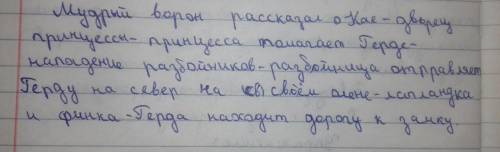 Мудрый ворон рассказал о Кае - дворец
принцессы - принцесса помогает Герде -
нападение разбойников - разбойница отправляет
Герду на север на (в) своём олене - лапландка
и финка - Герда находит дорогу к замку.